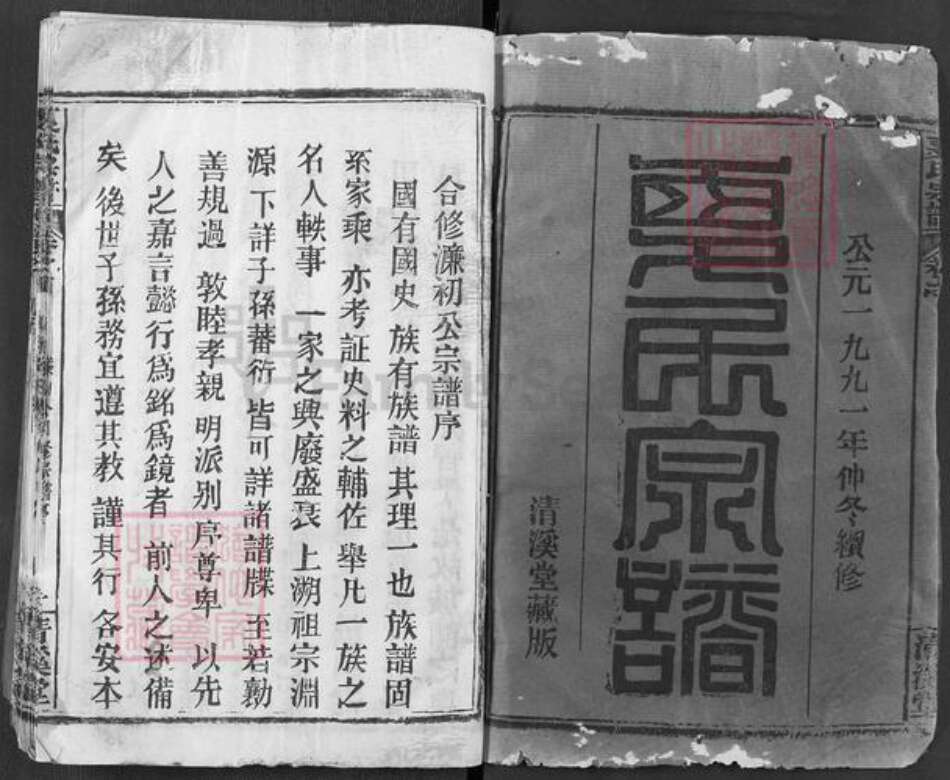 公元一九九一年仲冬續修
氏宗譜
清溪堂藏版
合修濂初公宗譜序
國有國史族有族譜其理一也族譜固
系家乘亦考証史料之輔佐舉凡一族之
名人軼事一家之興廢盛衰上溯祖宗淵
源下詳子孫蕃衍皆可詳諸譜牒至若勸
善規過敦睦孝親明派别序尊卑以先
人之嘉言懿行爲銘爲鏡者前人之述備
矣後世子孫務宜遵其教謹其行各安本